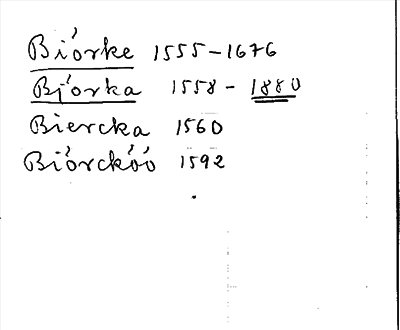 Biórke 1555-1676
Bjórka 1558 - 1880
Biercka 1560
Biórckóó 1592